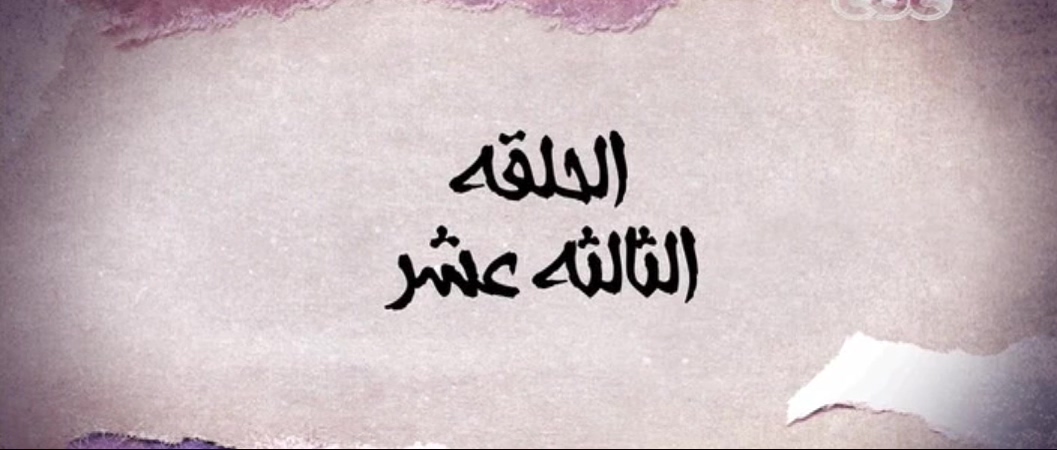 الحلقه
الثالثه عشر